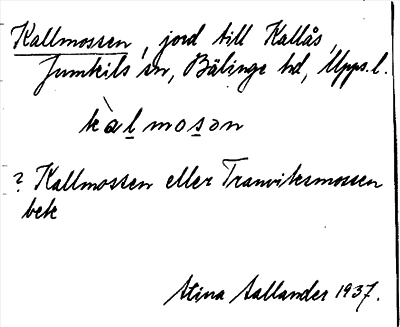 Kallmossen, jord till Kallås,
Jumkils sn, Bälinge hd, Upps. l.
kàlmosən
? Kallmossen eller Tranviksmossen
bete
Stina Sallander 1937.